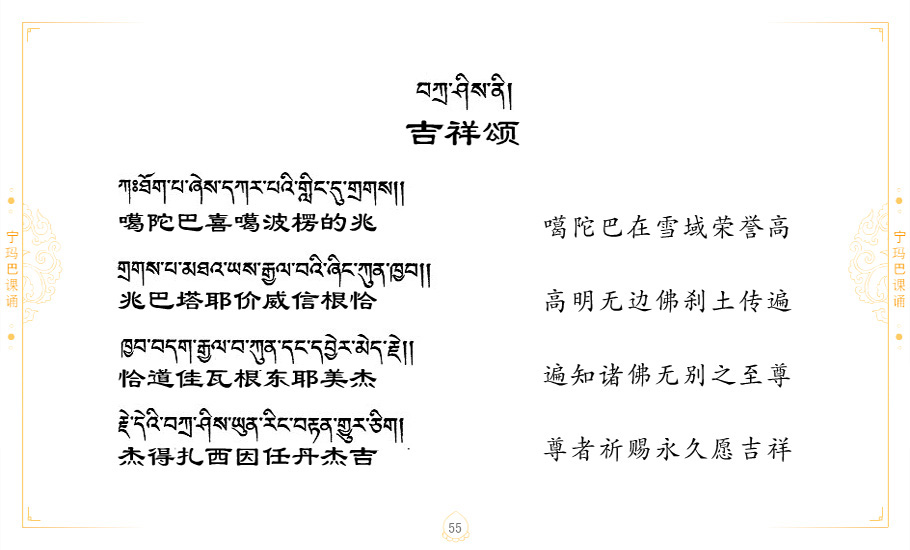 བཀྲ་ཤིས་ནི།
吉祥颂
ཀཿཐོག་པ་ཞེས་དཀར་པའི་གླིང་དུ་གྲགས།།
噶陀巴喜噶波楞的兆
噶陀巴在雪域荣誉高
གྲགས་པ་མཐའ་ཡས་རྒྱལ་བའི་ཞིང་ཀུན་ཁྱབ།།
兆巴塔耶价威信根恰
高明无边佛刹土传遍
ཁྱབ་བདག་རྒྱལ་བ་ཀུན་དང་དབྱེར་མེད་རྗེ།།
恰道佳瓦根东耶美杰
遍知诸佛无别之至尊
རྗེ་དེའི་བཀྲ་ཤིས་ཡུན་རིང་བརྟན་གྱུར་ཅིག།
杰得扎西因任丹杰吉
尊者祈赐永久愿吉祥
宁玛巴课诵
宁玛巴课诵
55